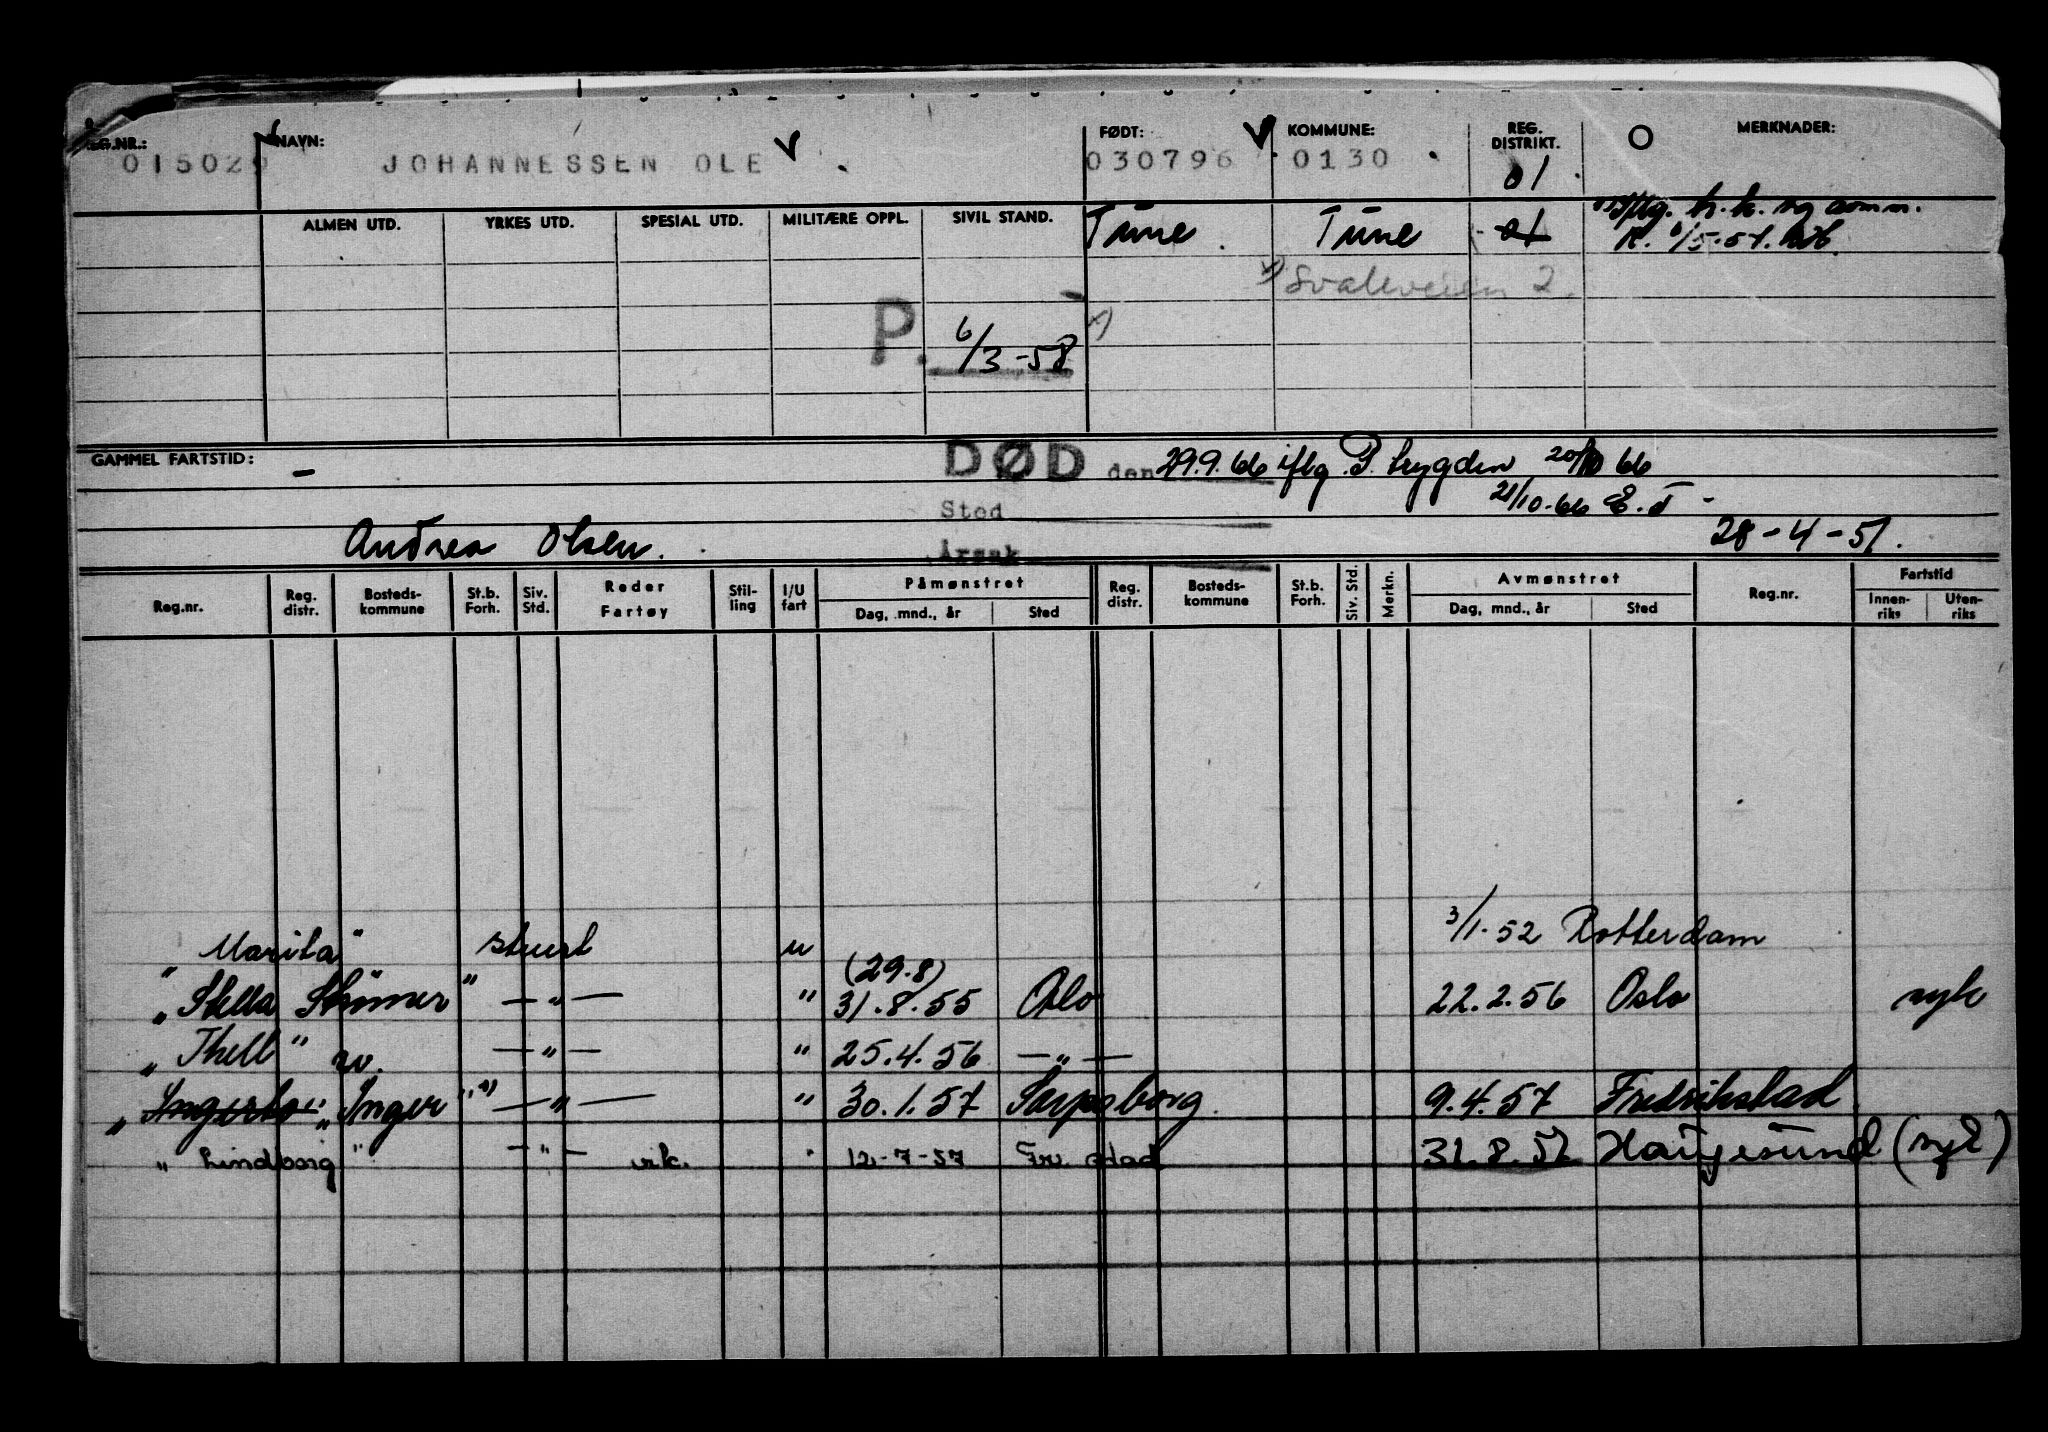 REG.NR.: NAVN: FØDT: KOMMUNE: REG. DISTRIKT. MERKNADER:
015029 JOHANNESSEN OLE 030796 0130 01
ALMEN UTD. YRKES UTD. SPESIAL UTD. MILITÆRE OPPL. SIVIL STAND. Tune Tune 01
x) Svaleveien 2.
P. 6/3-58 x)
GAMMEL FARTSTID: - DØD den 29.9.66 iflg. P. trygden 20/10 66
Sted 21/10-66 E.T -
Andrea Olsen. Årsak 28-4-51.
Reg.nr. Reg. distr. Bosteds-kommune St.b. Forh. Siv. Std. Reder Fartøy Stil-ling I/U fart Påmønstret Dag, mnd., år Sted Reg. distr. Bosteds-kommune St.b. Forh. Siv. Std. Merkn. Avmønstret Dag, mnd., år Sted Reg.nr. Fartstid Innen-riks Uten-riks
"Marita" stuert u 3/1.52 Rotterdam
(29.8)
"Stella " — " — " 31.8.55 Oslo 22.2.56 Oslo syk
"Thell" — " — " 25.4.56 — " —
"Ingerto" "Inger" x) — " — " 30.1.57 Sarpsborg. 9.4.57 Fredrikstad
"Lindborg" — " — vik. " 12-7-57 Fr. stad 31.8.57 Haugesund (syk)